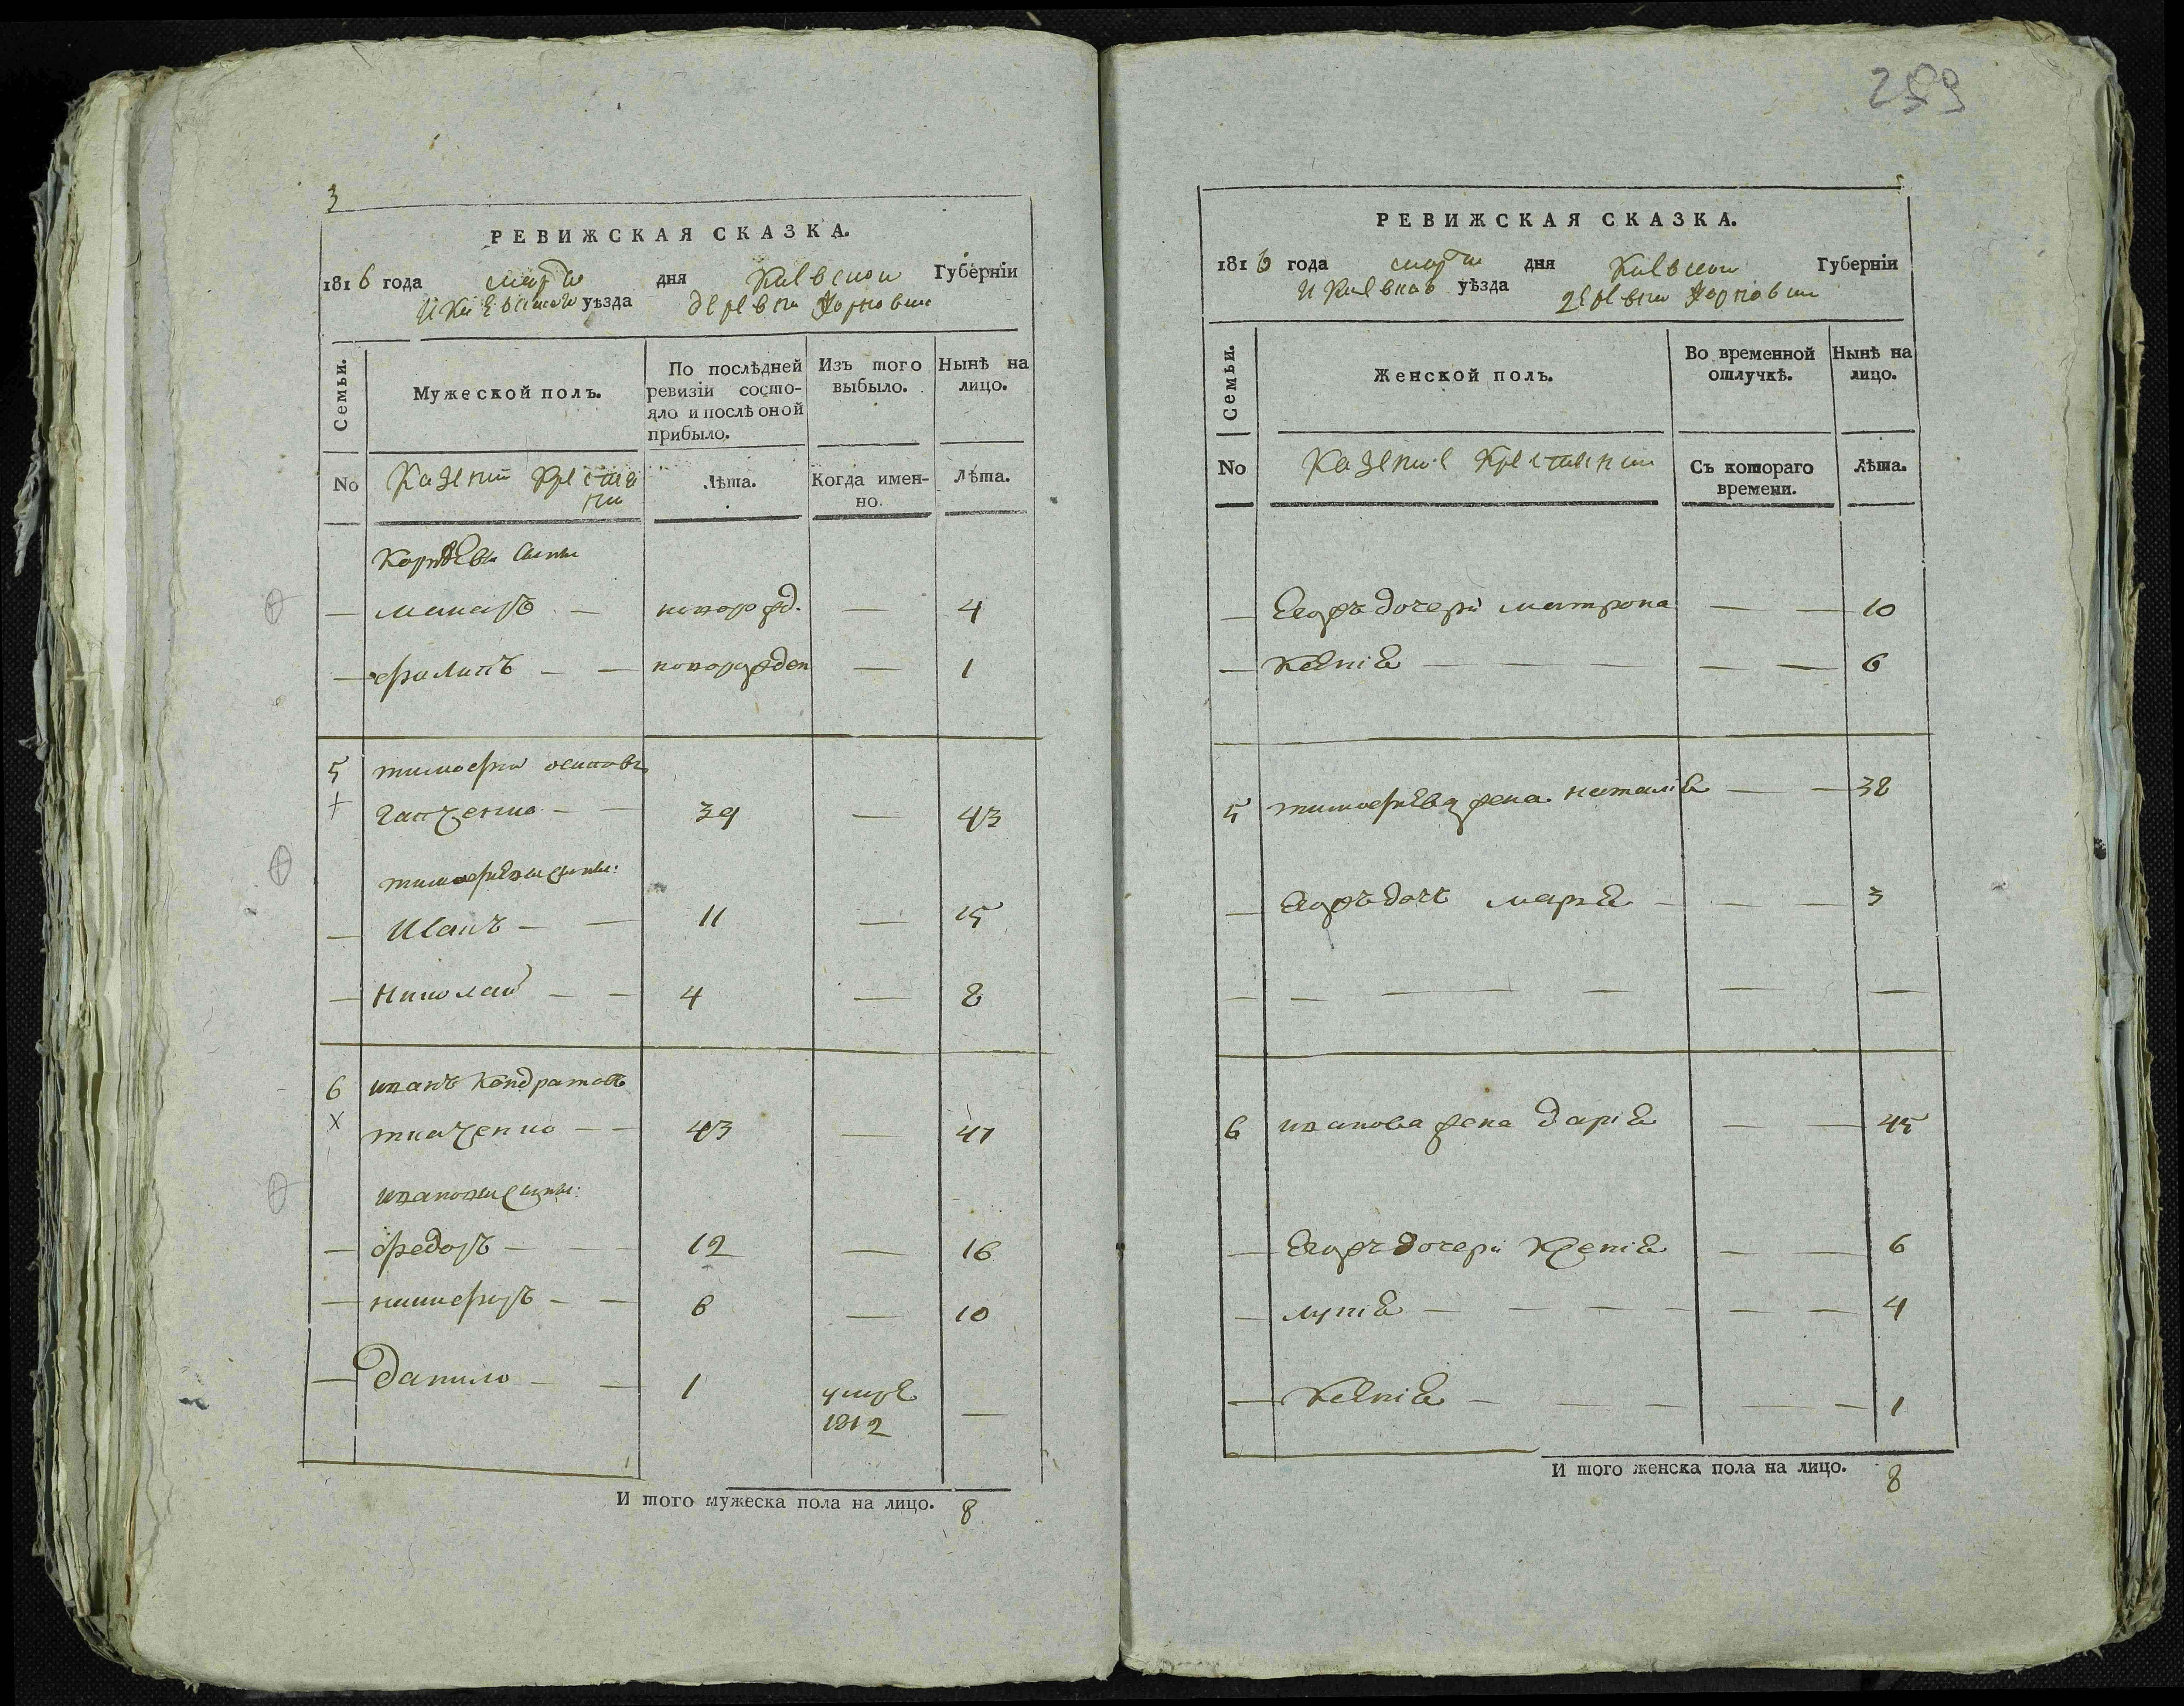 259
3
РЕВИЖСКАЯ СКАЗКА.
1816 года марта дня Киевской Губерніи
И Киевскаго уѣзда деревни
Семьи.
Мужеской полъ.
По послѣдней ревизіи состо-
яло и послѣ оной прибыло.
Изъ того выбыло.
Нынѣ на лицо.
No
Казении Крестя
ни
Лѣта.
Когда имен-
но.
Лѣта.
Корнѣевы сыны
— Макаръ — новорожд. — 4
— Филипъ — — новорожден — 1
5 тимофей осиповъ
+ Ганженко — — 39 — 43
тимофѣевы сыны:
— Исакъ — — 11 — 15
— Николай — — 4 — 8
6 иванъ Кондратовъ
X ткаченко — — 43 — 47
ивановы сыны:
— федоръ — — 12 — 16
— никифоръ — — 6 — 10
— данило — — 1 умре —
1812
И того мужеска пола на лицо. 8
РЕВИЖСКАЯ СКАЗКА.
1816 года марта дня Киевской Губерніи
И Киевскаго уѣзда деревни
Семьи.
Женской полъ.
Во временной отлучкѣ.
Нынѣ на лицо.
No
Казение Крестянки
Съ котораго времени.
Лѣта.
— Егожъ дочери матрона — — 10
— Ксенія — — — — — 6
5 тимофѣева жена наталія — — 38
— Егожъ дочь марія — — — 3
— — — — — — —
6 иванова жена дарія — — 45
— Егожъ дочери Ксенія — — 6
— лукія — — — — — — 4
— Ксенія — — — — — 1
И того женска пола на лицо. 8